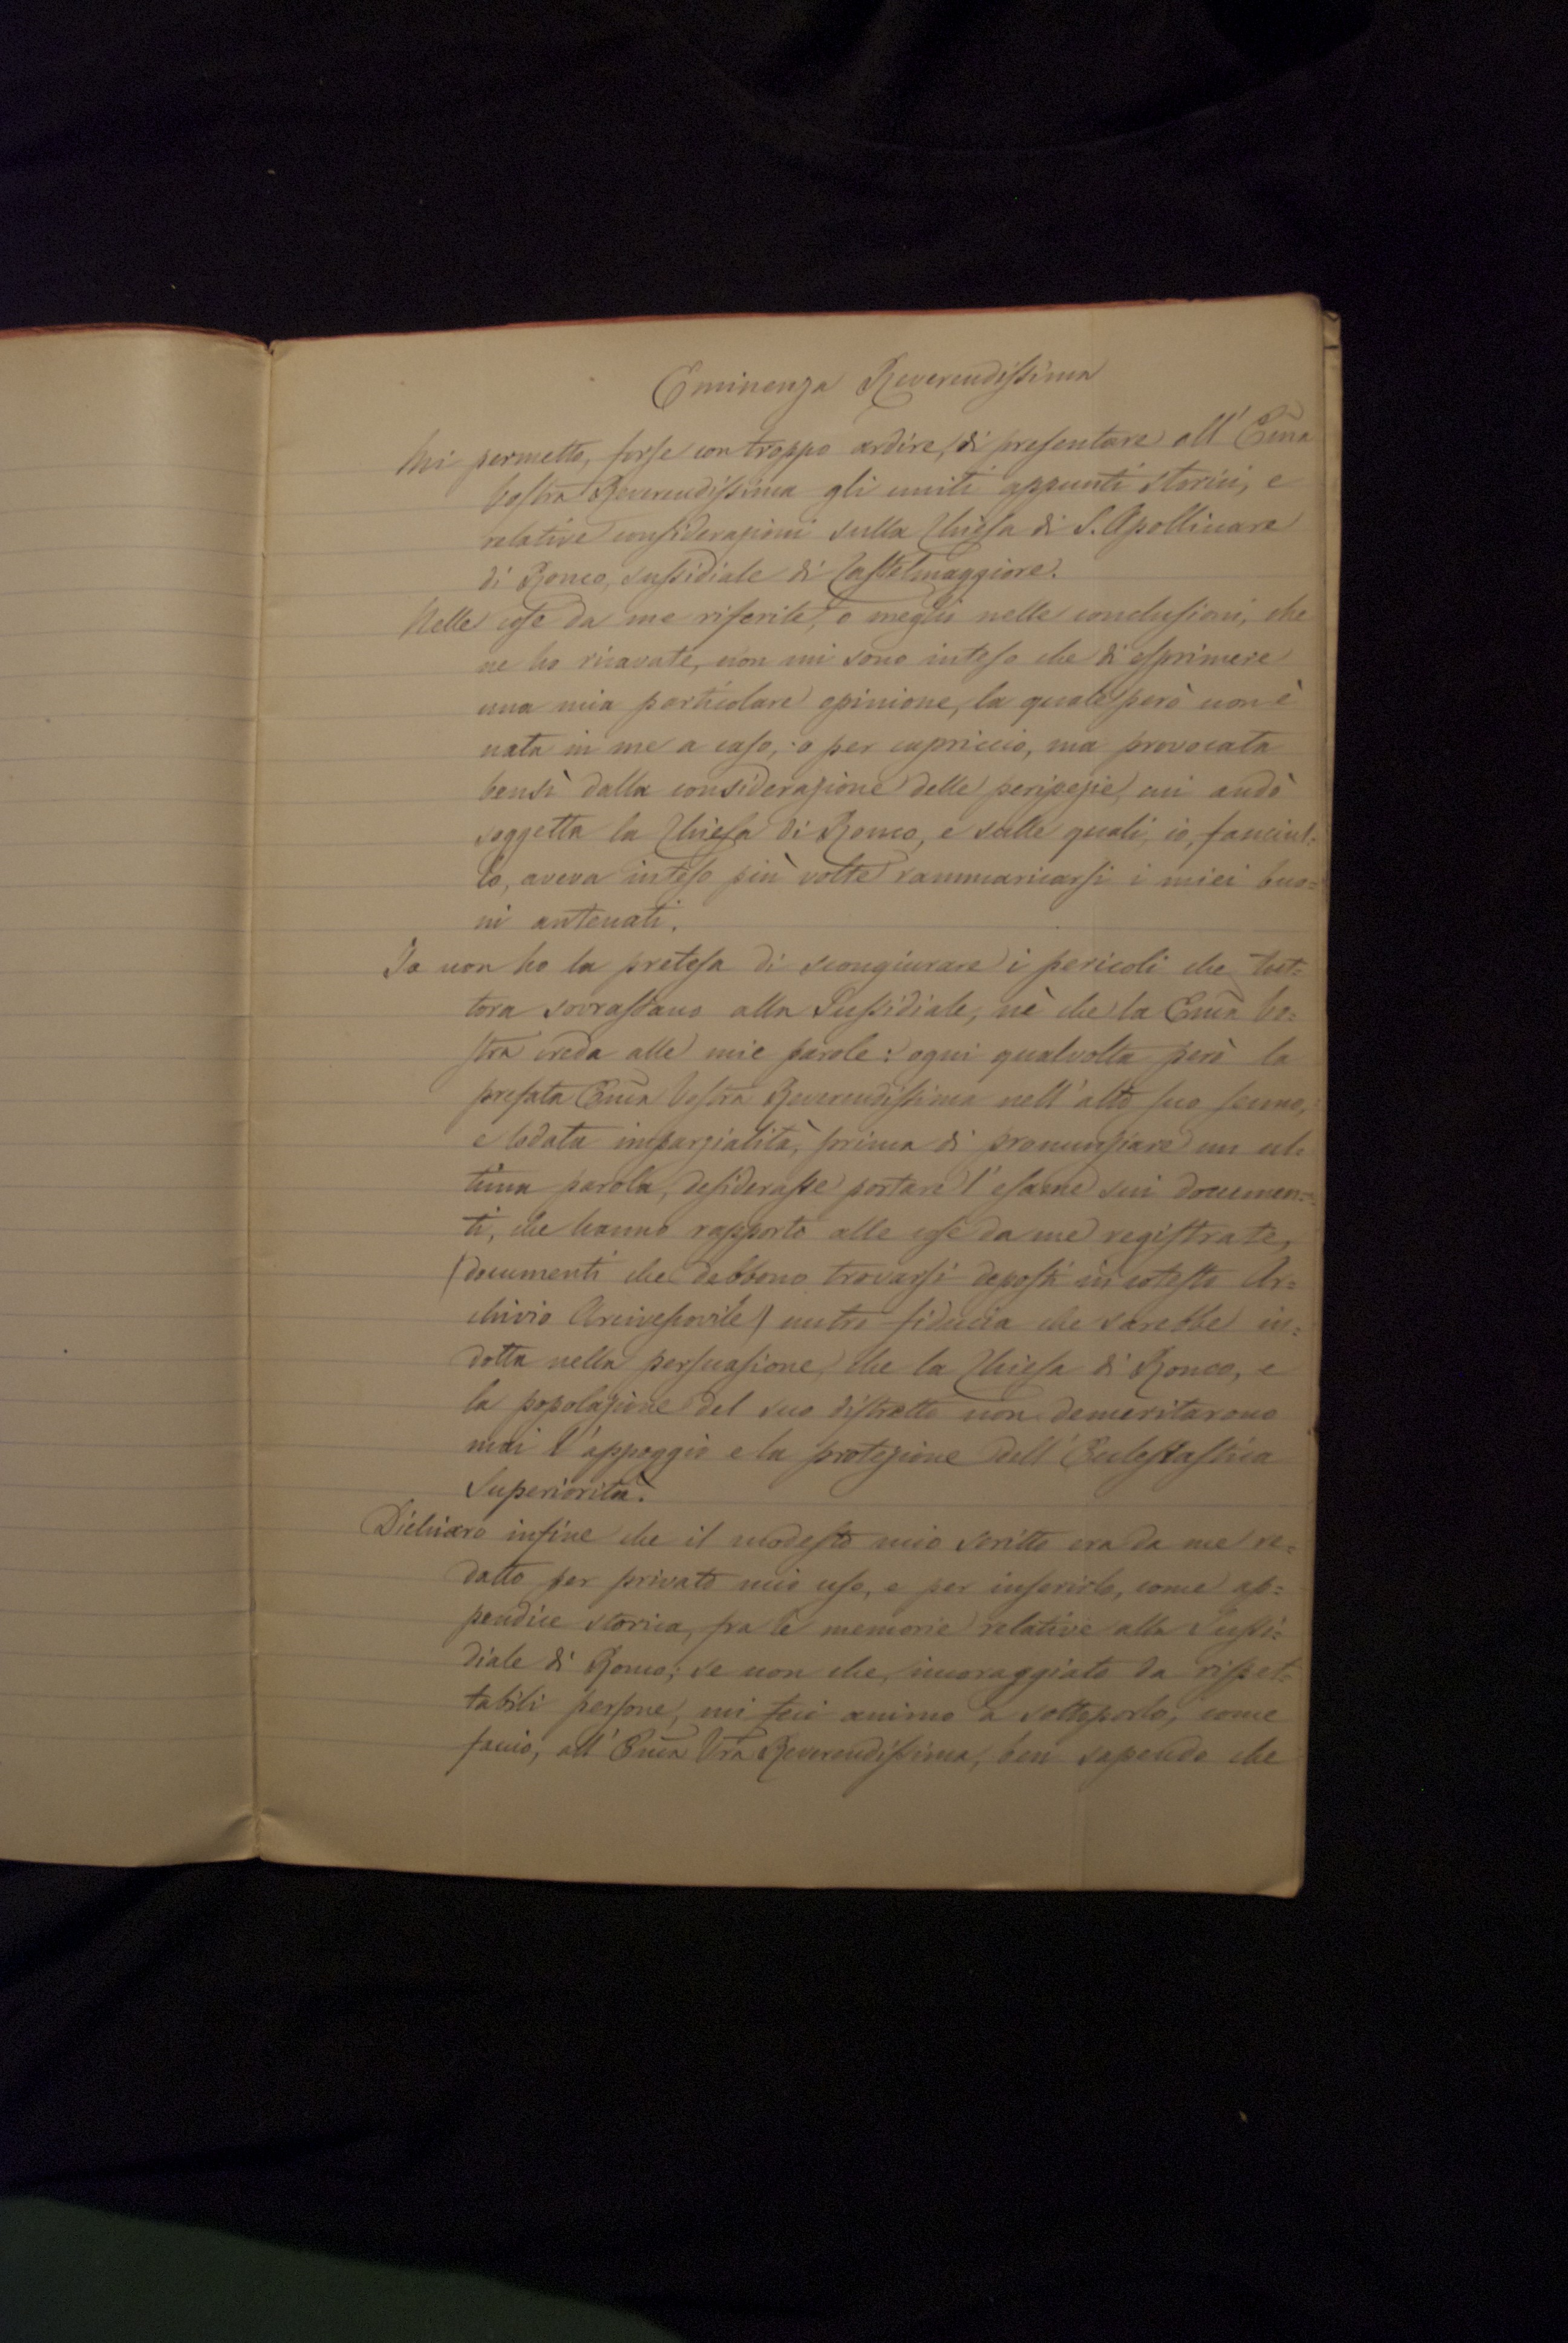 Eminenza Reverendissima
Mi permetto, forse con troppo ardire, di presentare all' Emã
Vostra Reverendissima gli uniti appunti storici, e
relative considerazioni sulla Chiesa di S. Apollinare
di Ronco, sussidiale di Castelmaggiore.
Nelle cose da me riferite, o meglio nelle conclusioni, che
ne ho ricavate, non mi sono inteso che di esprimere
una mia particolare opinione, la quale però non è
nata in me a caso, o per capriccio, ma provocata
bensì dalla considerazione delle peripezie, cui andò
soggetta la Chiesa di Ronco, e sulle quali, io, fanciul=
lo, aveva inteso più volte rammaricarsi i miei buo=
ni antenati.
Io non ho la pretesa di scongiurare i pericoli che tut=
tora sovrastano alla Sussidiale, nè che la Emã Vo=
stra creda alle mie parole: ogni qualvolta però la
prefata Emã Vostra Reverendissima nell' alto suo senno,
e lodata imparzialità, prima di pronunziare un ul=
tima parola, desiderasse portare l' esame sui documen=
ti, che hanno rapporto alle cose da me registrate,
(documenti che debbono trovarsi deposti in cotesto Ar=
chivio Arcivescovile) nutro fiducia che sarebbe in=
dotta nella persuasione, che la Chiesa di Ronco, e
la popolazione del suo distretto non demeritarono
mai l' appoggio e la protezione dell' Ecclesiastica
Superiorità.
Dichiaro infine che il modesto mio scritto era da me re=
datto per privato mio uso, e per inserirlo, come ap=
pendice storica, fra le memorie relative alla Sussi=
diale di Ronco; se non che, incoraggiato da rispet=
tabili persone, mi feci animo a sottoporlo, come
faccio, all' Emã Vrã Reverendissima, ben sapendo che